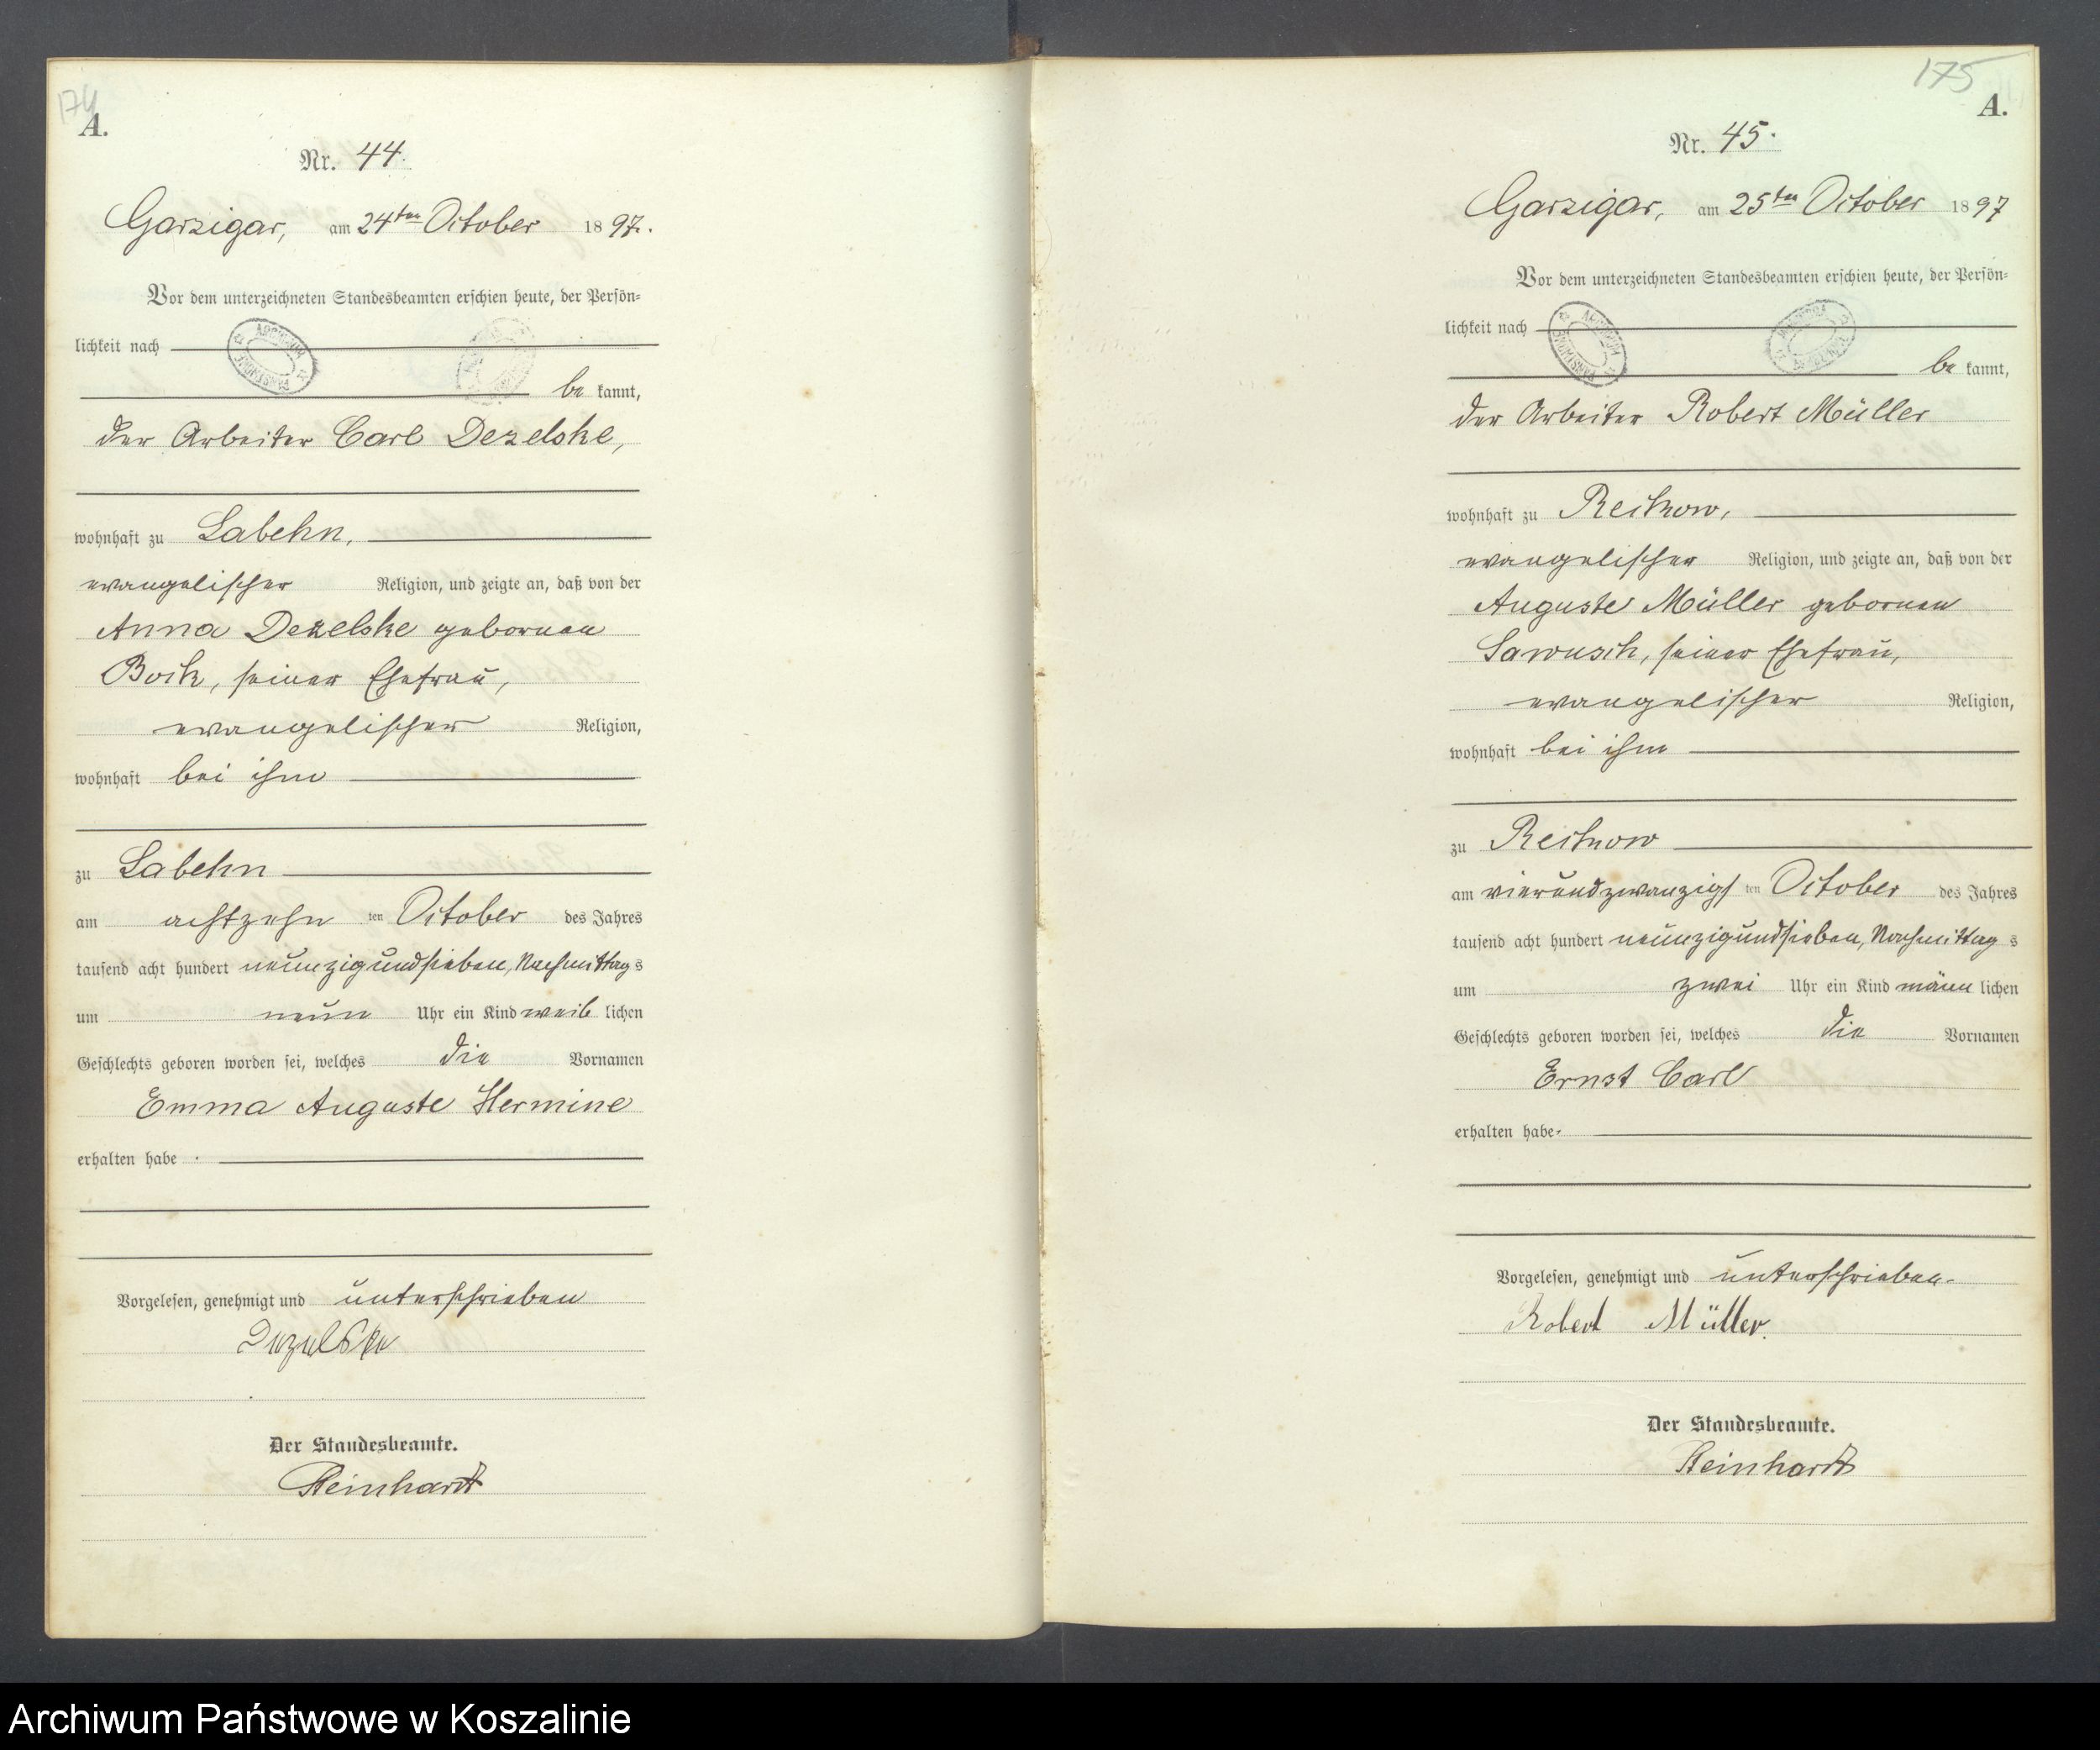 174
A.
Nr. 44.
Garzigar, am 24ten October 1897.
Vor dem unterzeichneten Standesbeamten erschien heute, der Persön-
lichkeit nach
be kannt,
der Arbeiter Carl Dezelske,
wohnhaft zu Labehn,
evangelischer Religion, und zeigte an, daß von der
Anna Dezelske gebornen
Bock, seiner Ehefrau,
evangelischer Religion,
wohnhaft bei ihm
zu Labehn
am achtzehn ten October des Jahres
tausend acht hundert neunzigundsieben, Nachmittag s
um neun Uhr ein Kind weib lichen
Geschlechts geboren worden sei, welches die Vornamen
Emma Auguste Hermine
erhalten habe.
Vorgelesen, genehmigt und unterschrieben
Dezelske
Der Standesbeamte.
Reinhardt
175
A.
Nr. 45.
Garzigar, am 25ten October 1897
Vor dem unterzeichneten Standesbeamten erschien heute, der Persön-
lichkeit nach
be kannt,
der Arbeiter Robert Müller
wohnhaft zu Reckow,
evangelischer Religion, und zeigte an, daß von der
Auguste Müller gebornen
Sawusch, seiner Ehefrau,
evangelischer Religion,
wohnhaft bei ihm
zu Reckow
am vierundzwanzigs ten October des Jahres
tausend acht hundert neunzigundsieben, Nachmittag s
um zwei Uhr ein Kind männ lichen
Geschlechts geboren worden sei, welches die Vornamen
Ernst Carl
erhalten habe.
Vorgelesen, genehmigt und unterschrieben.
Robert Müller.
Der Standesbeamte.
Reinhardt
Archiwum Państwowe w Koszalinie